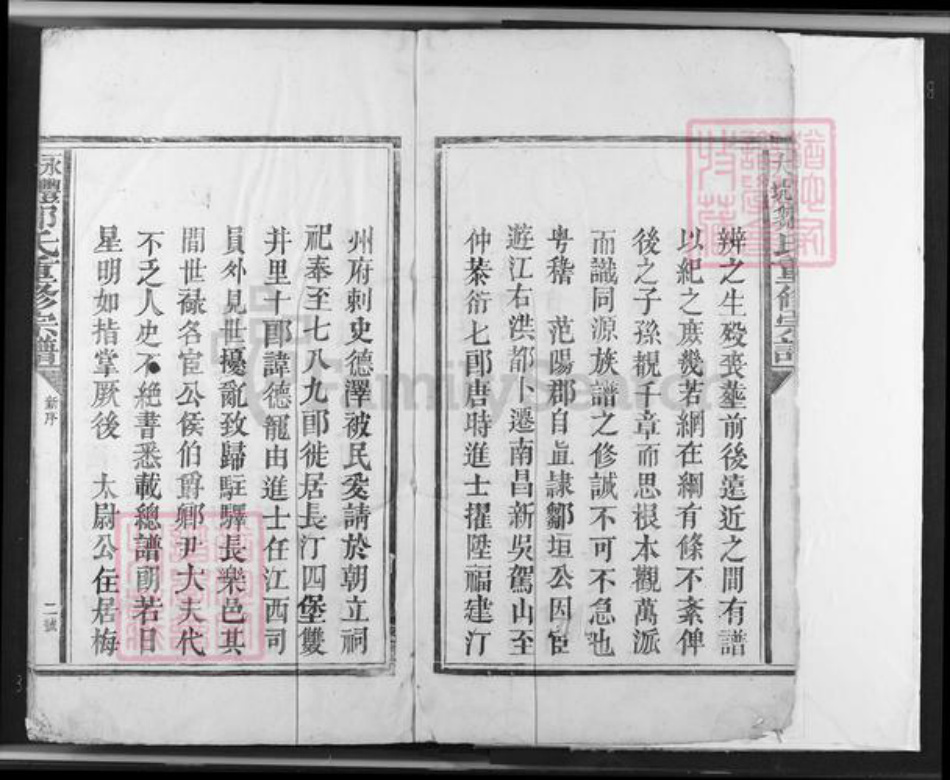 辨之生歿喪塟前後遠近之間有譜
以紀之庶幾若網在綱有條不紊俾
後之子孫覩千章而思根本觀萬派
而識同源族譜之修誠不可不急也
粤稽 范陽郡自直隷鄒垣公因宦
遊江右洪都卜遷南昌新吳駕山至
仲恭衍七郎唐時進士擢陞福建汀
州府刺史德澤被民叐請於朝立祠
祀奉至七八九郎徙居長汀四堡雙
井里十郎諱德寵由進士任江西司
員外見世擾亂致歸駐驛長樂邑其
間世祿各宦公侯伯爵卿尹大夫代
不乏人史不絶書悉載總譜朗若日
星明如指掌厥後 太尉公住居梅
氏重修宗譜
新序
二號
FamilySearch